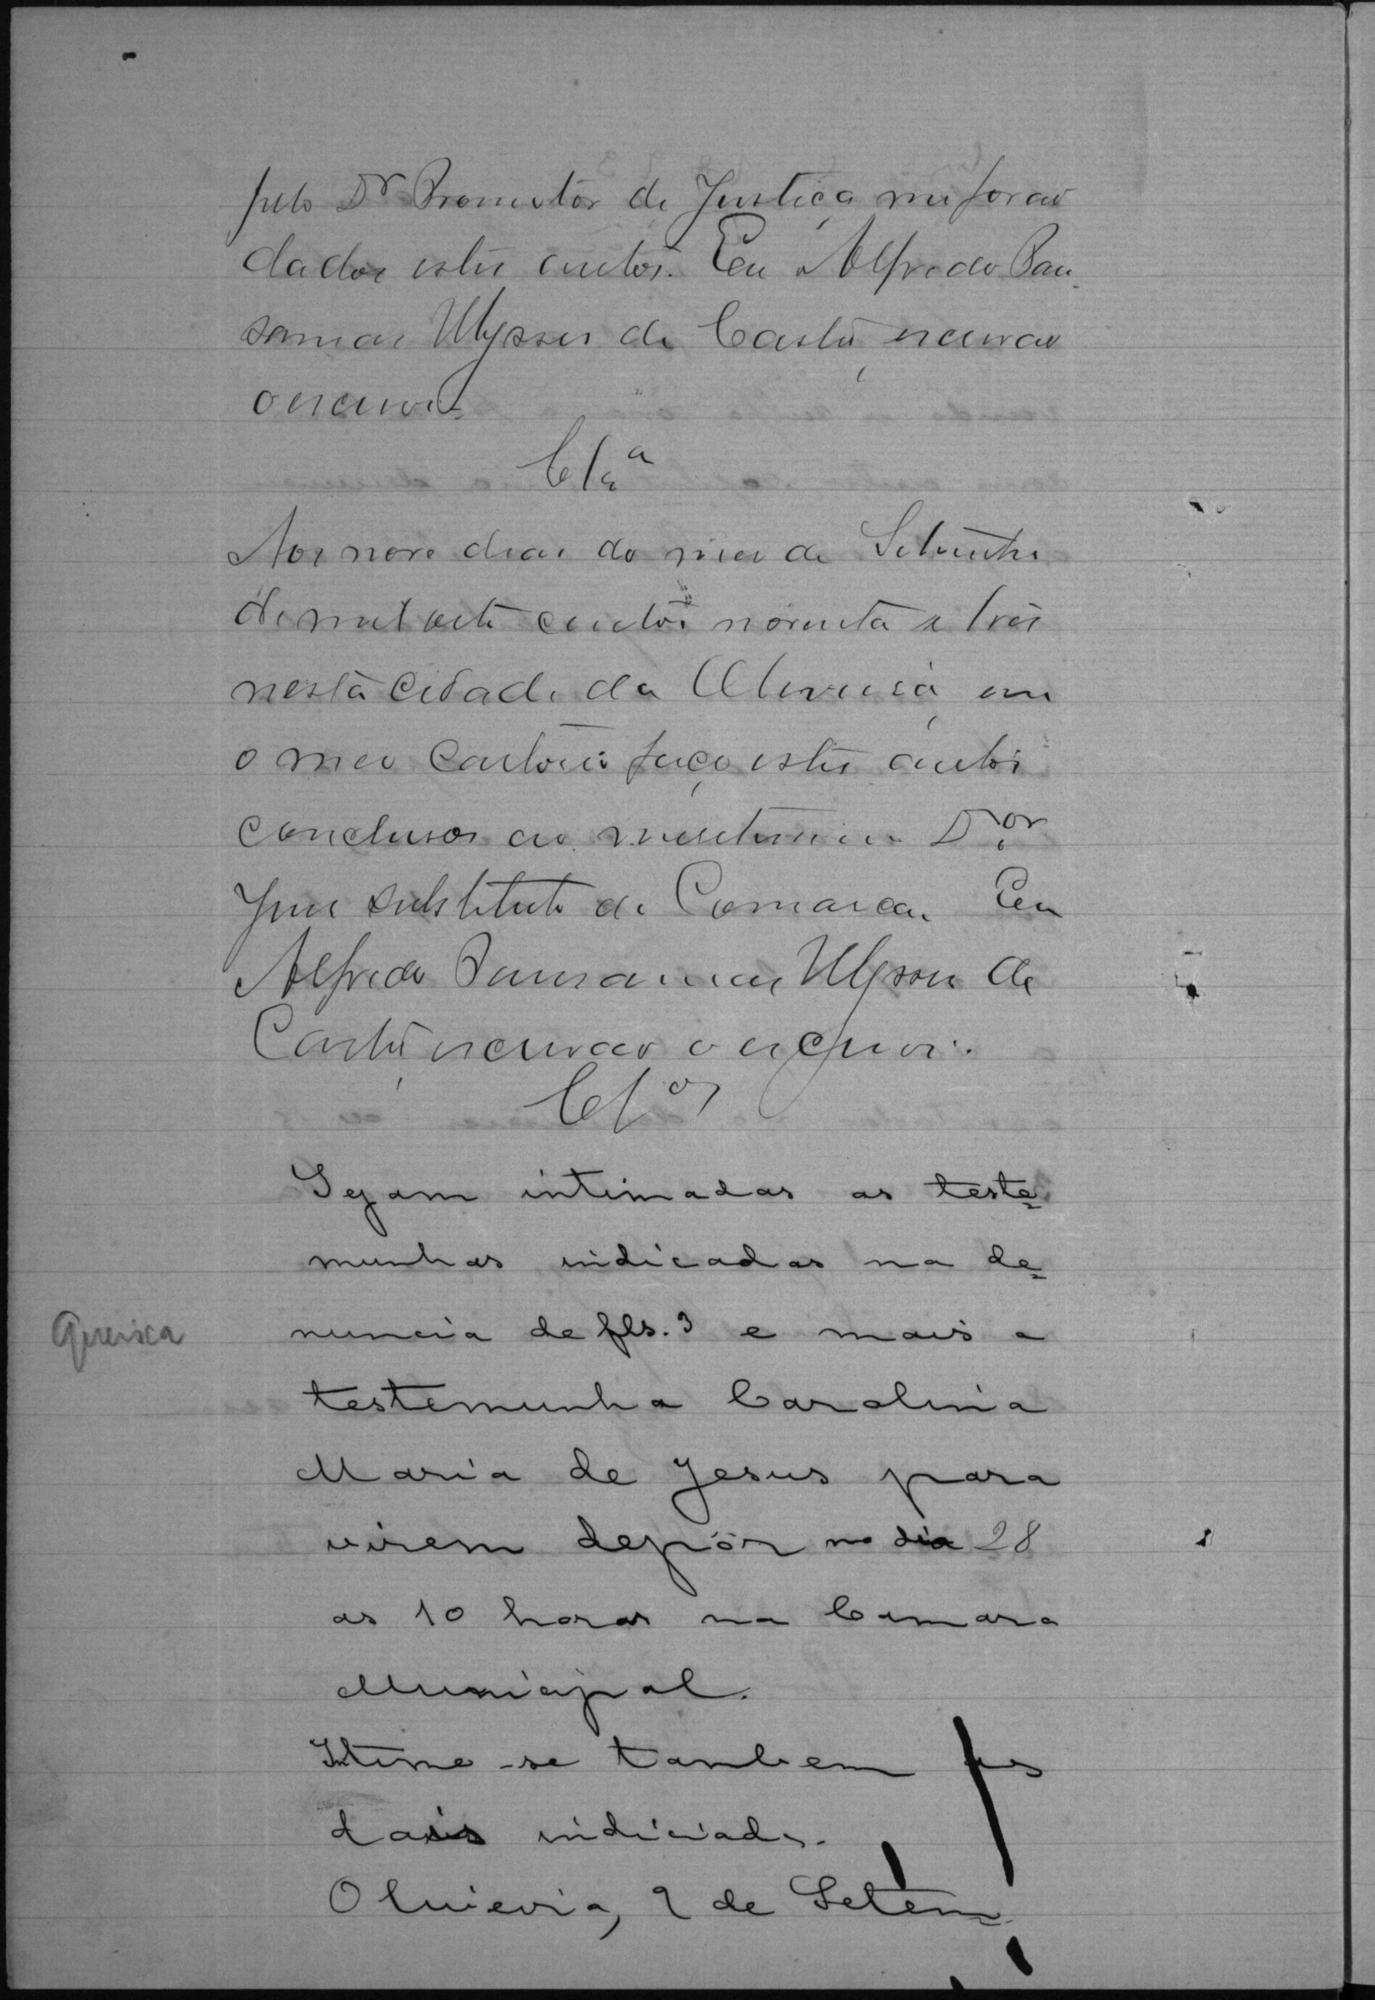 pelo Dr Promotor de Justiça me forão
dados estes autos. Eu Alfredo Pau
sanias Ulysses de Castro, escrivão
o escrevi.
Clsa
Aos nove dias do mes de Setembro
de mil oito centos noventa e tres
nesta cidade da Oliveira, em
o meu cartorio faço estes autos
conclusos ao meretissimo Dor
Juis substituto da Comarca. Eu
Alfredo Pausanias Ulysses de
Castro, escrivão o escrevi.
Clsos
Sejam intimadas as teste-
munhas indicadas na de-
Queixa
nuncia de fls. 3 e mais a
testemunha Carolina
Maria de Jesus para
virem depôr no dia 28
as 10 horas na Camara
Municipal.
Intime-se tambem os
dois indiciados.
Oliveira, 9 de Setem